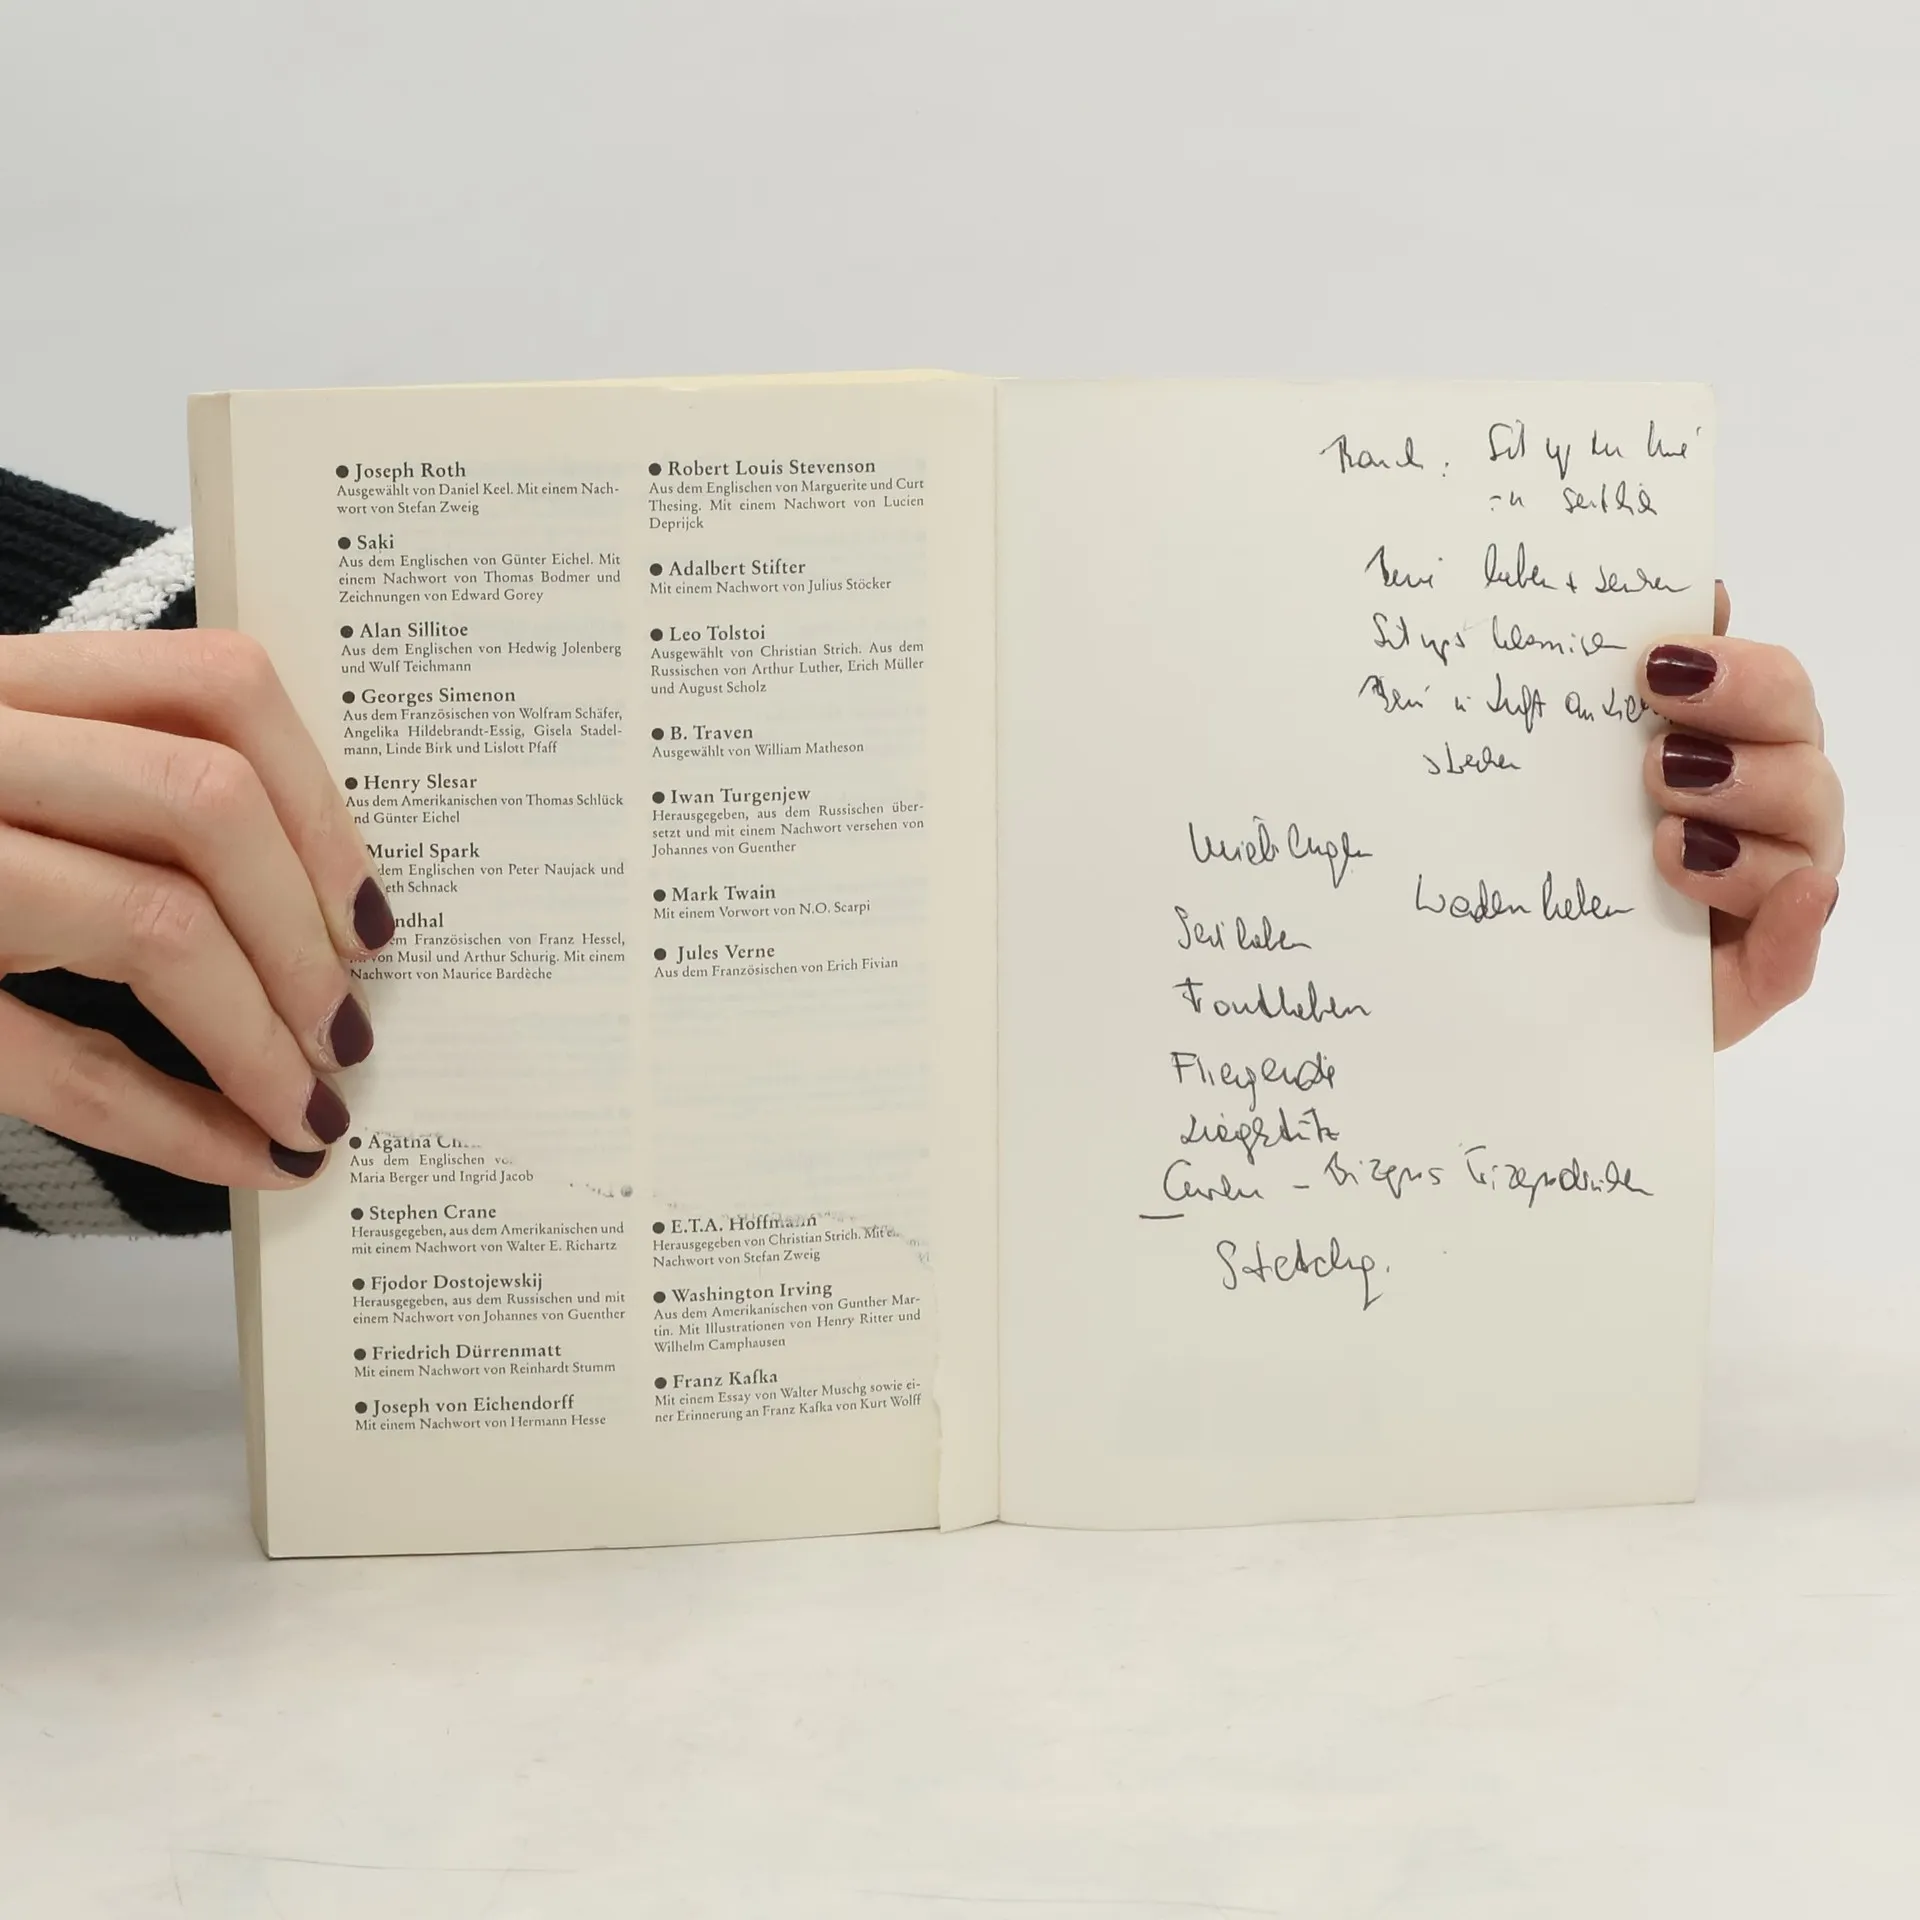 ● Joseph Roth
Ausgewählt von Daniel Keel. Mit einem Nach-
wort von Stefan Zweig
● Saki
Aus dem Englischen von Günter Eichel. Mit
einem Nachwort von Thomas Bodmer und
Zeichnungen von Edward Gorey
● Alan Sillitoe
Aus dem Englischen von Hedwig Jolenberg
und Wulf Teichmann
● Georges Simenon
Aus dem Französischen von Wolfram Schäfer,
Angelika Hildebrandt-Essig, Gisela Stadel-
mann, Linde Birk und Lislott Pfaff
● Henry Slesar
Aus dem Amerikanischen von Thomas Schlück
nd Günter Eichel
Muriel Spark
dem Englischen von Peter Naujack und
eth Schnack
ndhal
em Französischen von Franz Hessel,
von Musil und Arthur Schurig. Mit einem
Nachwort von Maurice Bardèche
● Agatha
Aus dem Englischen
Maria Berger und Ingrid Jacob
● Stephen Crane
Herausgegeben, aus dem Amerikanischen und
mit einem Nachwort von Walter E. Richartz
● Fjodor Dostojewskij
Herausgegeben, aus dem Russischen und mit
einem Nachwort von Johannes von Guenther
● Friedrich Dürrenmatt
Mit einem Nachwort von Reinhardt Stumm
● Joseph von Eichendorff
Mit einem Nachwort von Hermann Hesse
● Robert Louis Stevenson
Aus dem Englischen von Marguerite und Curt
Thesing. Mit einem Nachwort von Lucien
Deprijck
● Adalbert Stifter
Mit einem Nachwort von Julius Stöcker
● Leo Tolstoi
Ausgewählt von Christian Strich. Aus dem
Russischen von Arthur Luther, Erich Müller
und August Scholz
● B. Traven
Ausgewählt von William Matheson
● Iwan Turgenjew
Herausgegeben, aus dem Russischen über-
setzt und mit einem Nachwort versehen von
Johannes von Guenther
● Mark Twain
Mit einem Vorwort von N.O. Scarpi
● Jules Verne
Aus dem Französischen von Erich Fivian
● E.T.A. Hoffmann
Herausgegeben von Christian Strich. Mit
Nachwort von Stefan Zweig
● Washington Irving
Aus dem Amerikanischen von Gunther Mar-
tin. Mit Illustrationen von Henry Ritter und
Wilhelm Camphausen
● Franz Kafka
Mit einem Essay von Walter Muschg sowie ei-
ner Erinnerung an Franz Kafka von Kurt Wolff
Bauch : Sit up
Bein heben + senken
Sit ups klassisch
Bein in Luft
strecken
Wadenheben
Seitheben
Frontheben
Fliegende
Liegestütz
Bizeps Trizepsdrücken